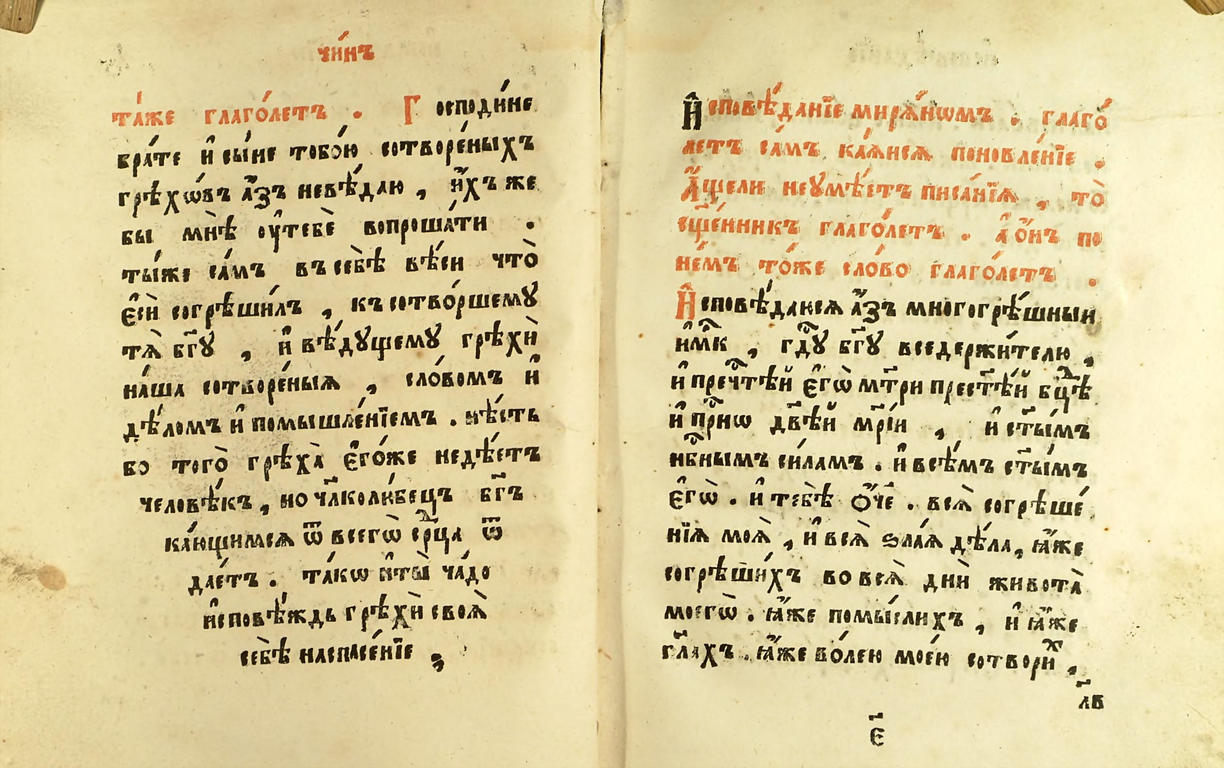 чи́нъ
та́же глаго́летъ . Господи́не
бра́те и҆ сы́не тобо́ю сотворе́ныхъ
грѣхѡ́въ а҆́зъ невѣ́даю , и҆́хъ же
бы мнѣ̀ ѹ҆тебѐ вопроша́ти .
ты́же са́мъ въ себѣ̀ вѣ́си что̀
є҆сѝ согрѣши́лъ , къ сотво́ршемꙋ
тѧ̀ бг҃ꙋ , и҆ вѣ́дꙋщемꙋ грѣхѝ
на́ша сотворе́ныѧ , сло́вомъ и҆
дѣ́ломъ и҆ помышле́нїемъ . нѣ́сть
бо того̀ грѣха̀ є҆го́же недѣ́етъ
человѣ́къ , но чл҃колю́бецъ бг҃ъ
ка́ющимсѧ ѿ всегѡ̀ се́рдца ѿ
дае́тъ . та́кѡ и҆ ты̀ ча́до
и҆сповѣ́ждь грѣхѝ своѧ̀
себѣ̀ наспасе́нїе ,
И҆сповѣ́данїе мирѧ́нѡмъ . глаго́
летъ са́мъ ка́ѧисѧ поновле́нїе .
А҆́щели неꙋмѣ́етъ писа́нїѧ , то̀
сщ҃е́нникъ глаго́летъ . а҆ о҆́нъ по
не́мъ то́же сло́во глаго́летъ .
И҆сповѣ́даюсѧ а҆́зъ многогрѣ́шныи
и҆м҃къ , гдⷭ҇ꙋ бг҃ꙋ вседержи́телю ,
и҆ пречⷭ҇тѣй є҆гѡ̀ мт҃ри прест҃ѣ́й бц҃ѣ
и҆ прⷭ҇нѡ дв҃ѣй мр҃і́и , и҆ ст҃ы́мъ
нбⷭ҇нымъ си́ламъ . и҆ всѣ́мъ ст҃ы́мъ
є҆гѡ̀ . и҆ тебѣ̀ ѻ҆́ч҃е . всѧ̀ согрѣше́
нїѧ моѧ̀ , и҆ всѧ̀ ѕла́ѧ дѣ́ла , ꙗ҆́же
согрѣши́хъ во всѧ̀ дни̑ живота̀
моегѡ̀ . ꙗ҆́же помы́слихъ , и҆ ꙗ҆́же
гл҃ахъ . ꙗ҆́же во́лею мое́ю сотвори́ⷯ ,
л҃в
є҃